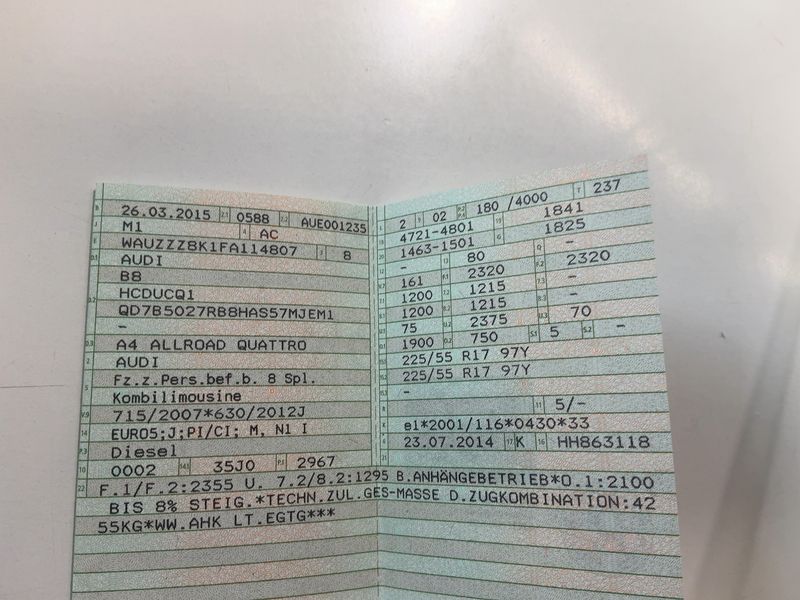 26.03.2015 0588 AUE001235
M1 AC
WAUZZZ8K1FA114807 8
AUDI
B8
HCDUCQ1
QD7B5027RB8HAS57MJEM1
-
A4 ALLROAD QUATTRO
AUDI
Fz.z.Pers.bef.b. 8 Spl.
Kombilimousine
715/2007*630/2012J
EURO5;J;PI/CI; M, N1 I
Diesel
0002 35J0 2967
2 02 180 /4000 237
4721-4801 1841
1463-1501 1825
- 80 -
161 2320 2320
1200 1215 -
1200 1215 -
75 2375 70
1900 750 5 -
225/55 R17 97Y
225/55 R17 97Y
-
5/-
e1*2001/116*0430*33
23.07.2014 K HH863118
F.1/F.2:2355 U. 7.2/8.2:1295 B.ANHÄNGEBETRIEB*O.1:2100
BIS 8% STEIG.*TECHN.ZUL.GES-MASSE D.ZUGKOMBINATION:42
55KG*WW.AHK LT.EGTG***